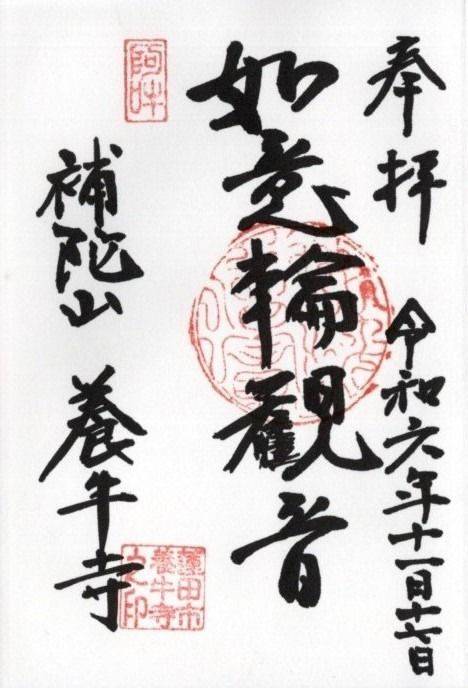 奉拝
令和六年十一月十七日
如意輪観音
阿吽
補陀山 養牛寺
蓮田市
養牛寺
之印